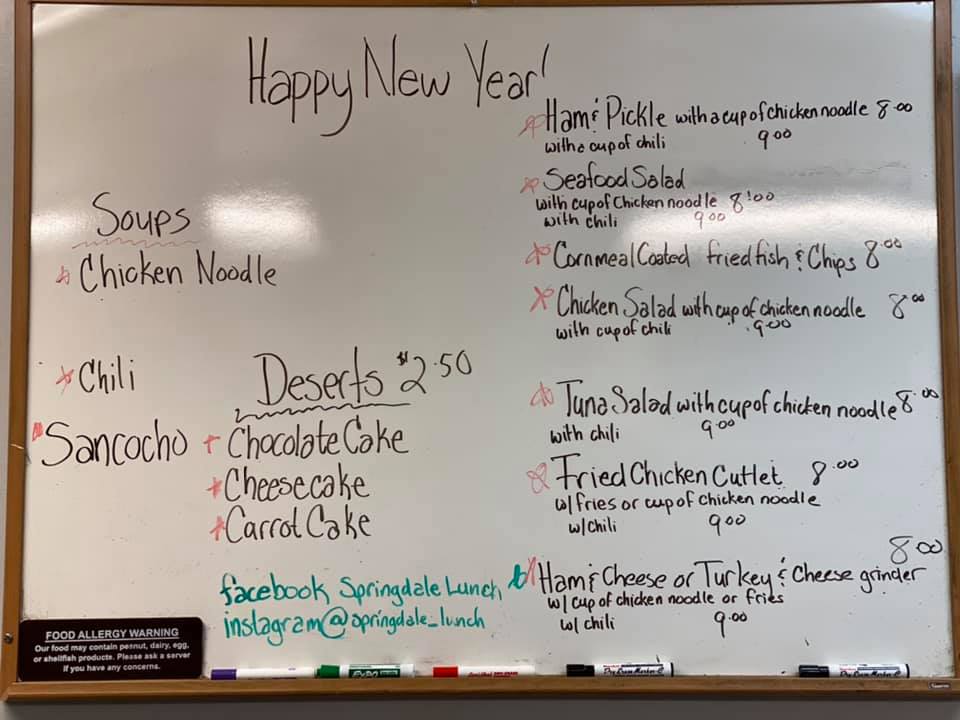 Happy New Year!
Soups
Chicken Noodle
Chili
Sancocho
Deserts $2.50
Chocolate Cake
Cheesecake
Carrot Cake
facebook Springdale Lunch
instagram@springdale_lunch
Ham & Pickle with a cup of chicken noodle 8.00
with a cup of chili 9.00
Seafood Salad
with cup of Chicken noodle 8.00
with chili 9.00
Cornmeal Coated fried fish & Chips 8.00
Chicken Salad with cup of chicken noodle 8.00
with cup of chili 9.00
Tuna Salad with cup of chicken noodle 8.00
with chili 9.00
Fried Chicken Cutlet 8.00
w/ fries or cup of chicken noodle
w/ chili 9.00
Ham & Cheese or Turkey & Cheese grinder 8.00
w/ cup of chicken noodle or fries
w/ chili 9.00
FOOD ALLERGY WARNING
Our food may contain peanut, dairy, egg,
or shellfish products. Please ask a server
if you have any concerns.
EXPO